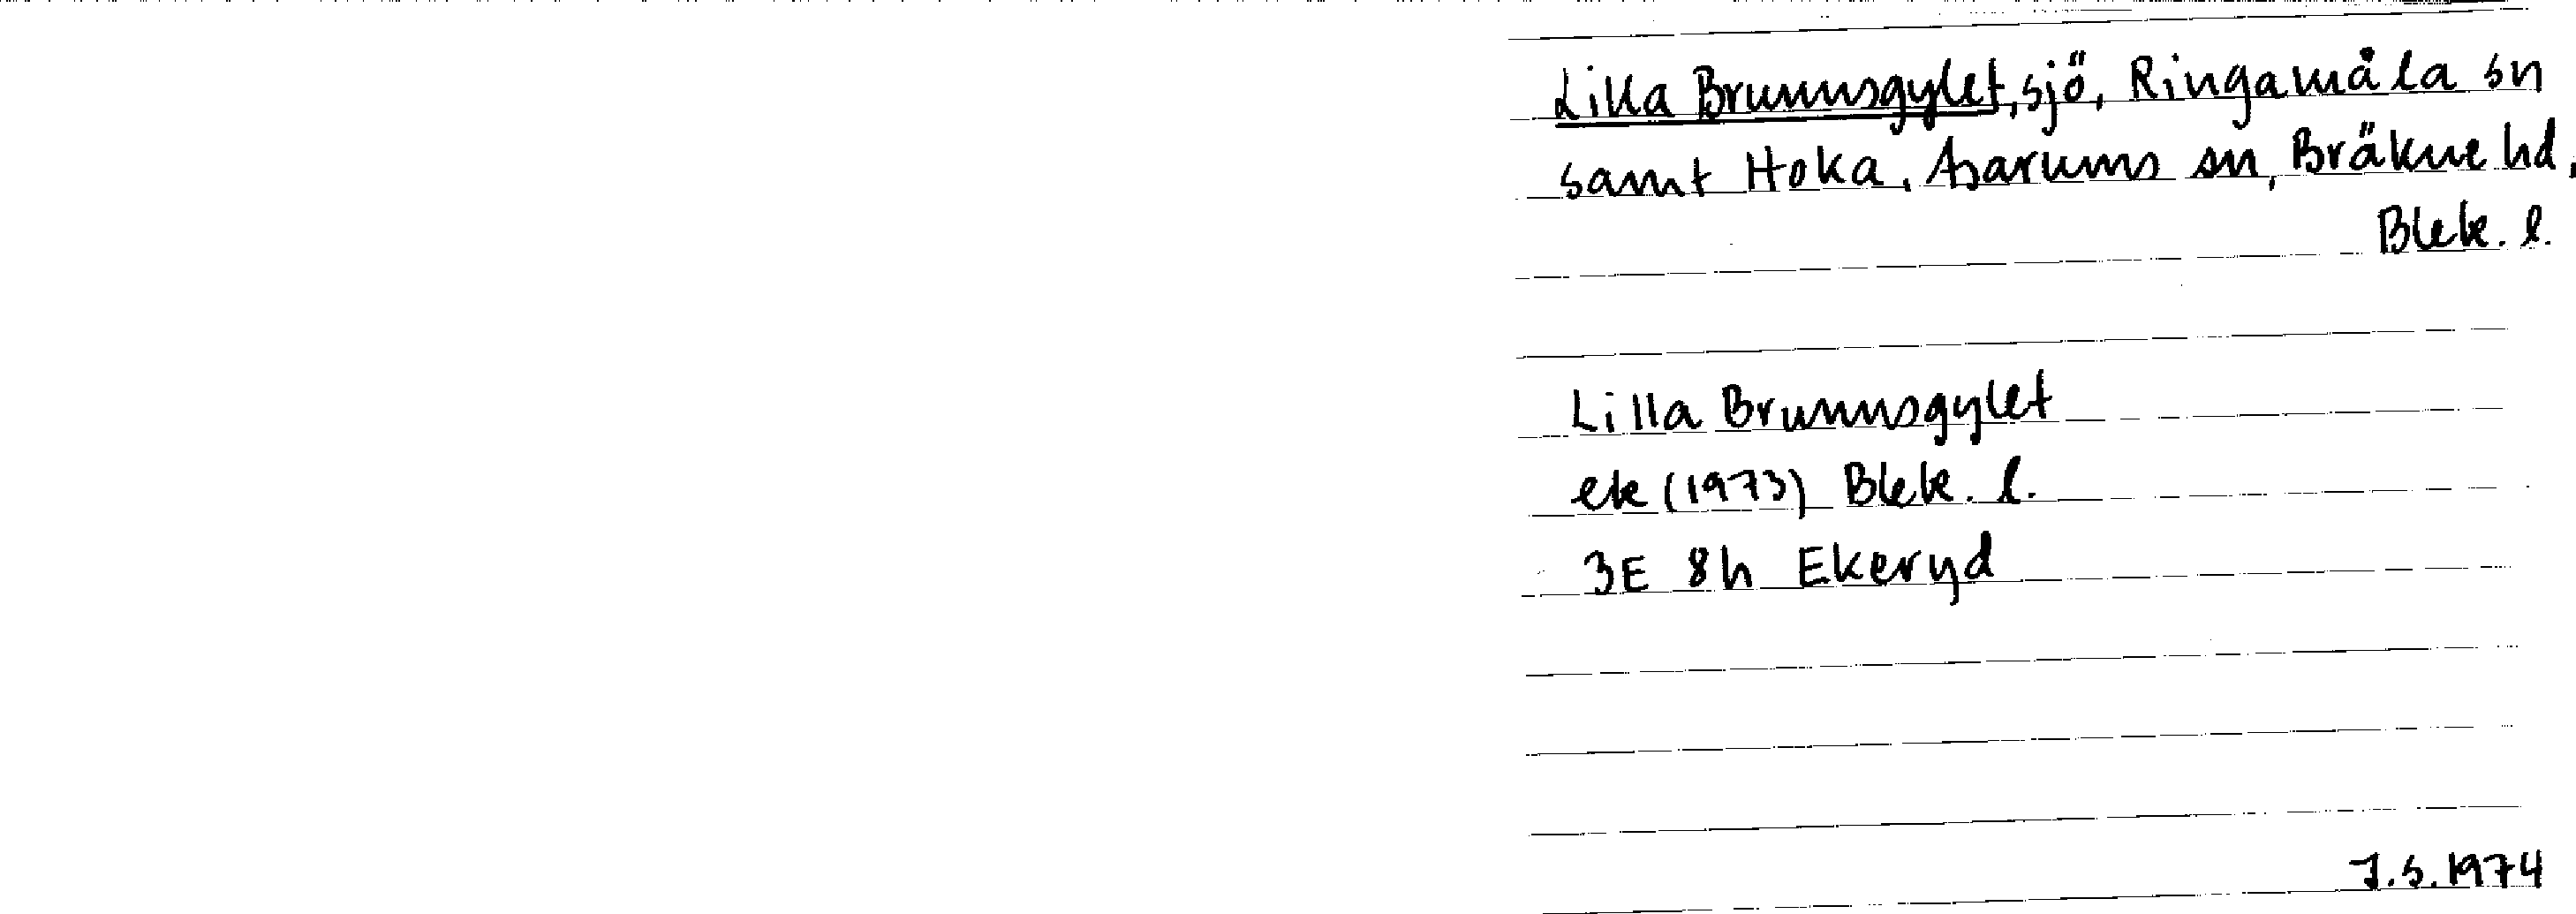 Lilla Brunnsgylet, sjö, Ringamåla sn
samt Hoka, Asarums sn, Bräkne hd,
Blek. l.
Lilla Brunnsgylet
ek (1973) Blek. l.
3E 8h Ekeryd
J.S. 1974